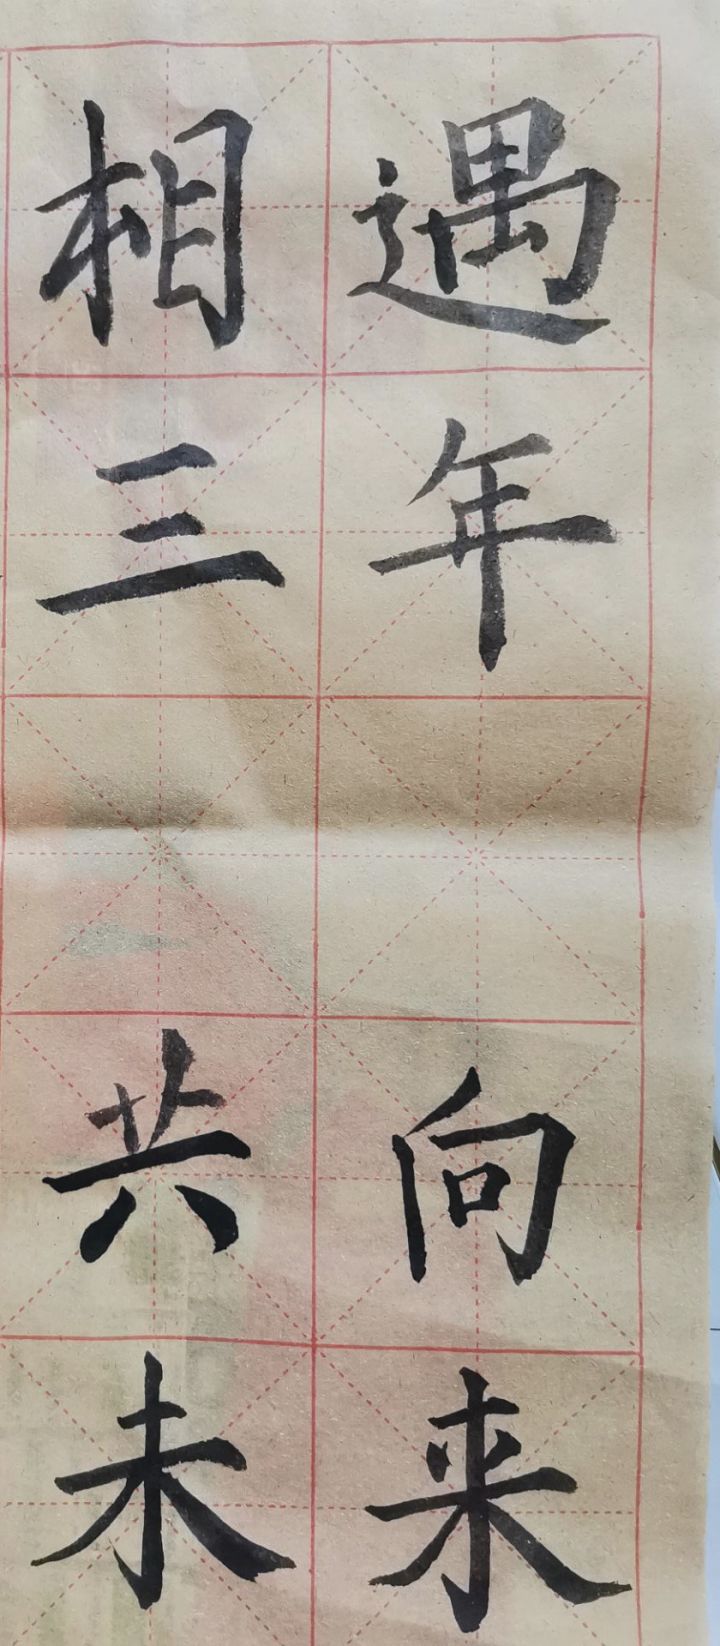 相遇
三年
共向
未来